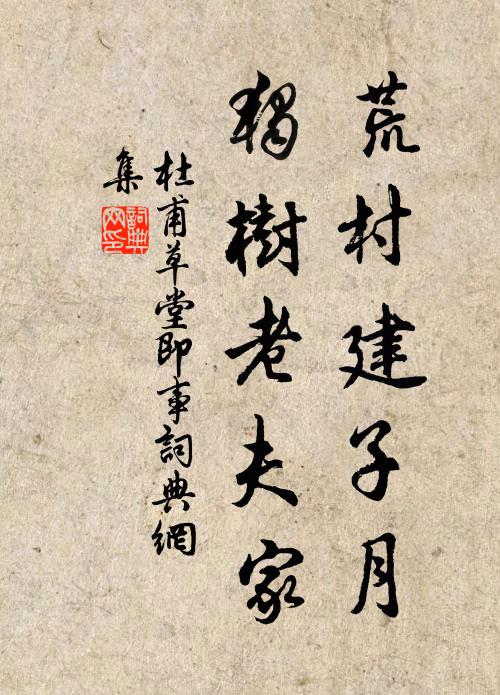 荒村建子月
獨樹老夫家
杜甫草堂即事詞典網
集
詞典
网印